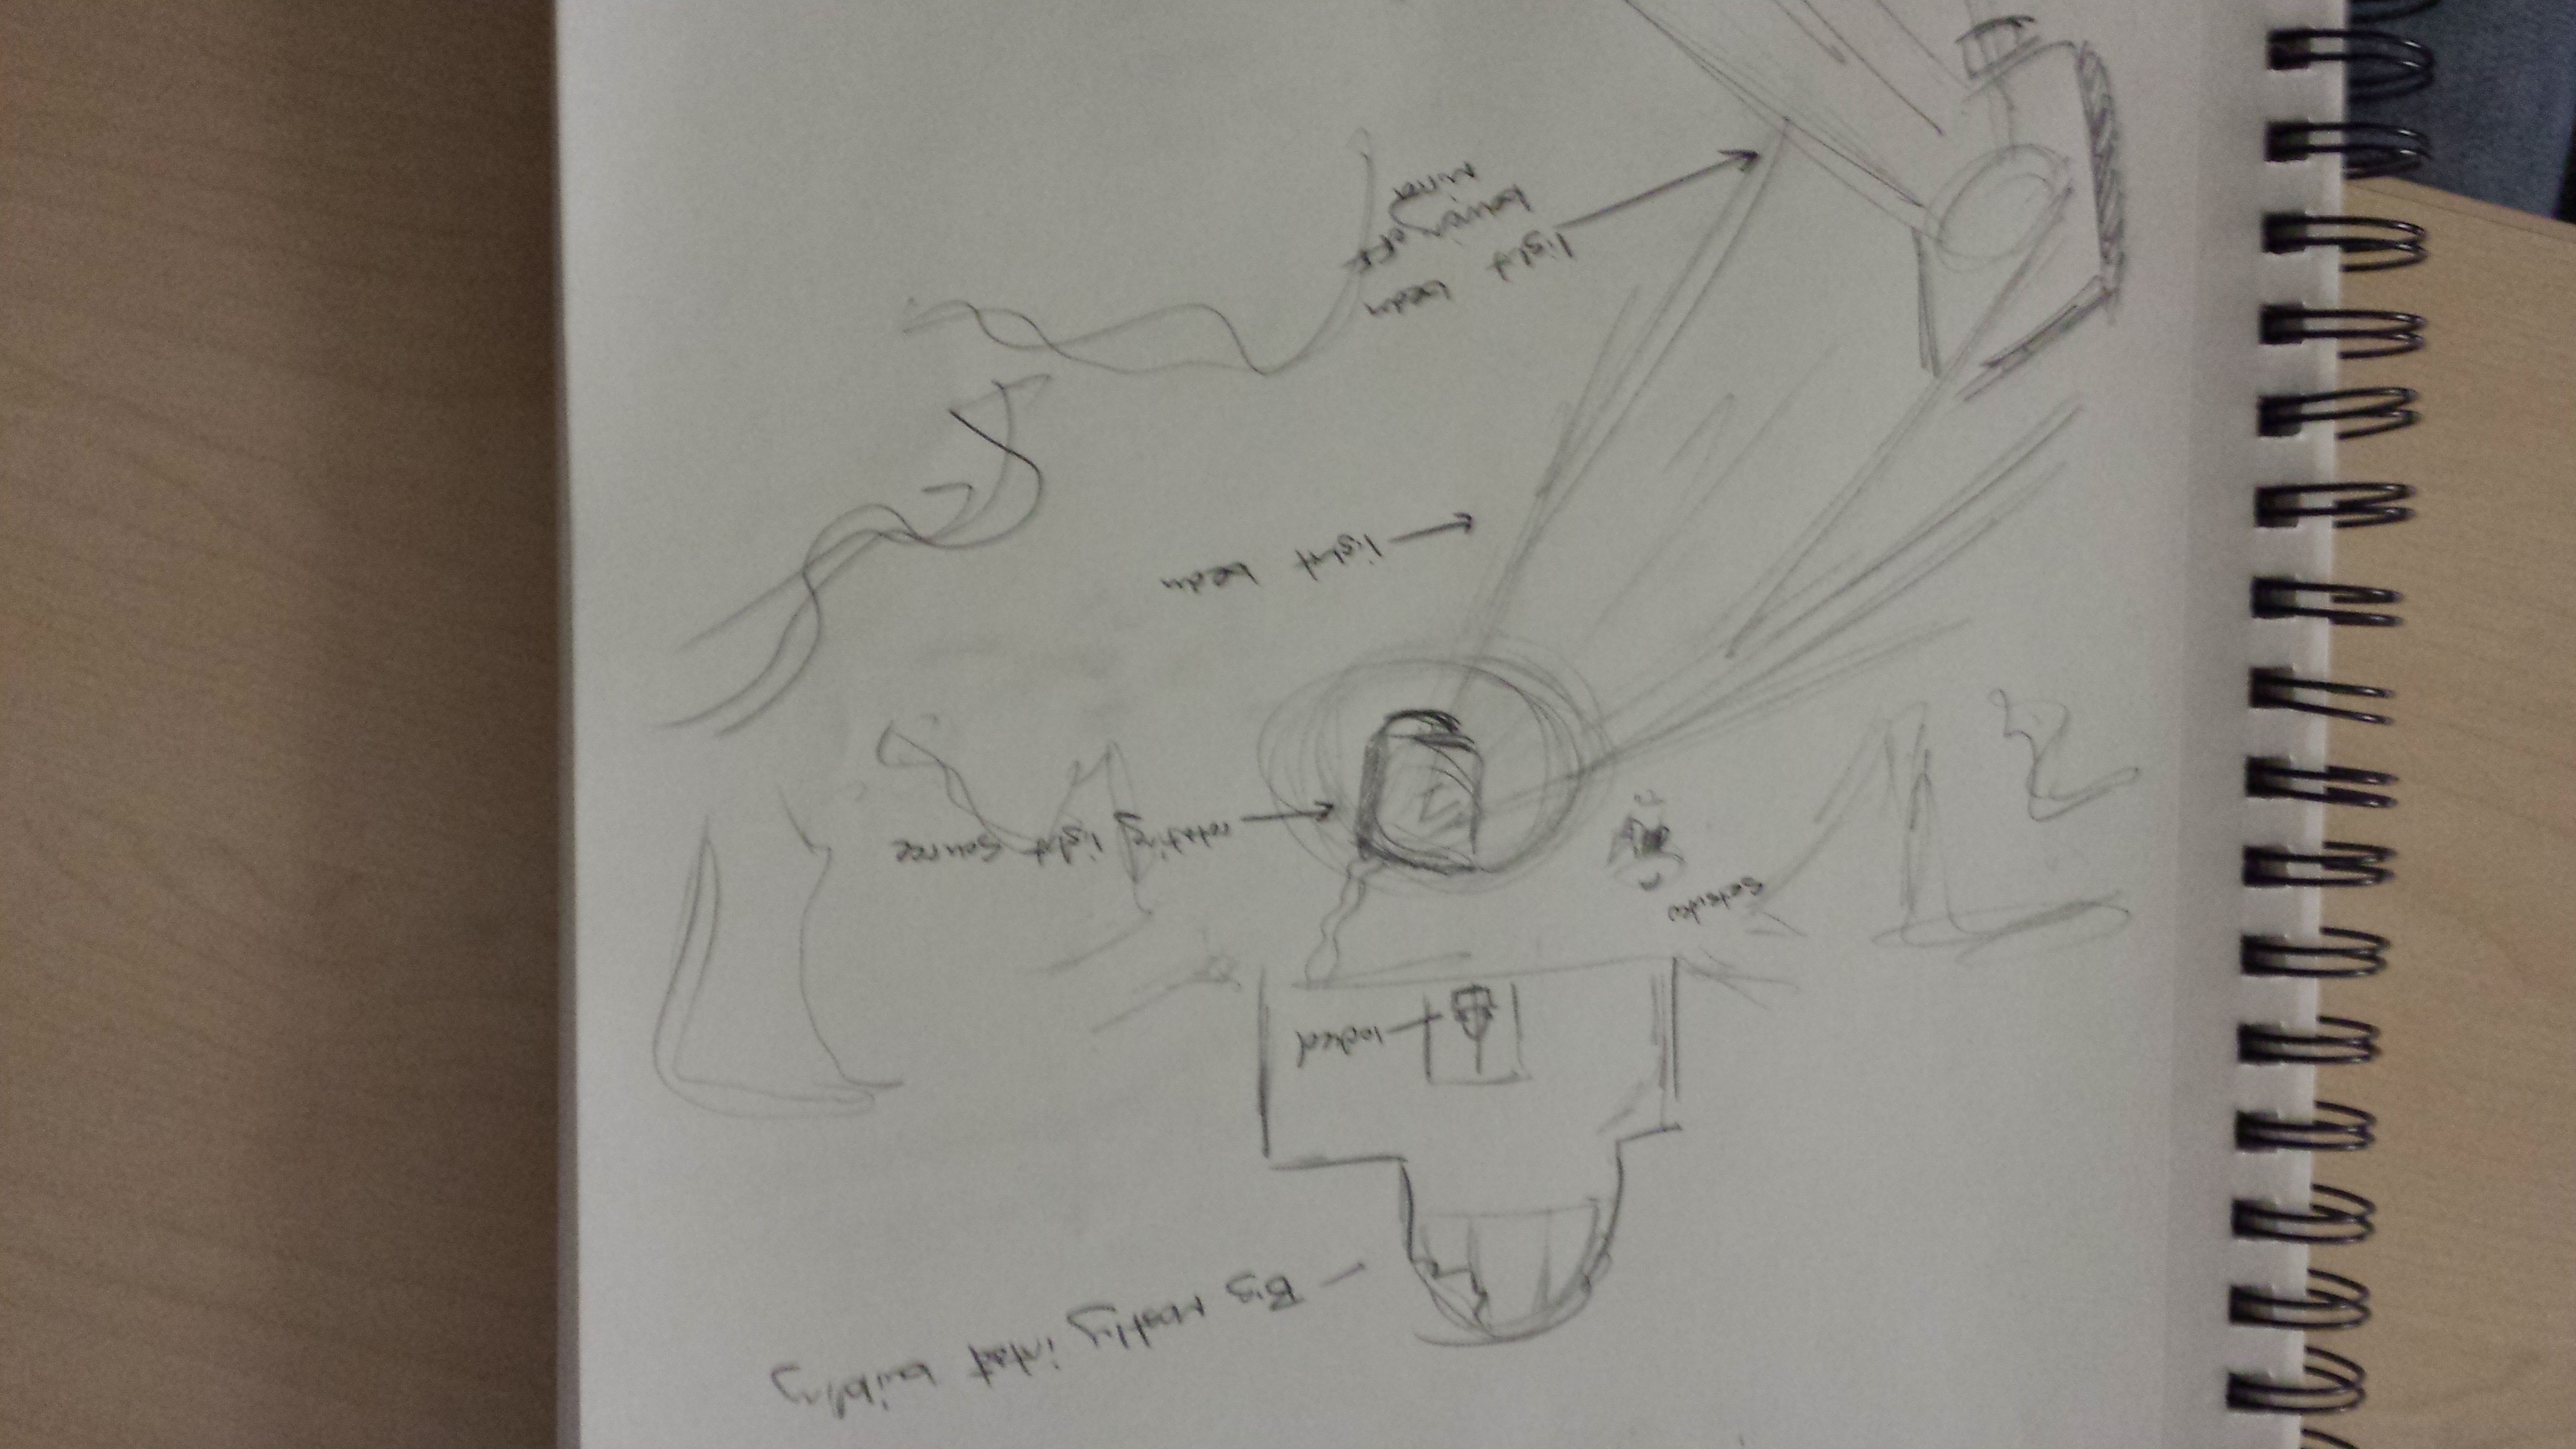 Big mostly intact building
locked
setsuko
rotating light source
light beam
light beam
bouncing off
mirror